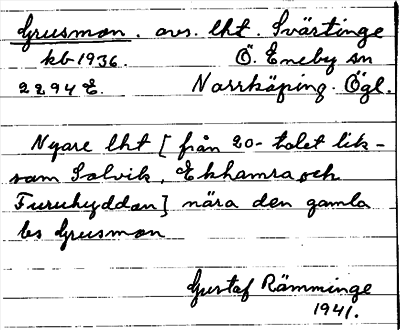 Grusmon. avs. lht. Svärtinge
kb 1936. Ö. Eneby sn
2294 E. Norrköping. Ögl.
Nyare lht [från 20-talet lik-
som Solvik, Ekhamra och
Furuhyddan] nära den gamla
bs Grusmon
Gustaf Rämminge
1941.